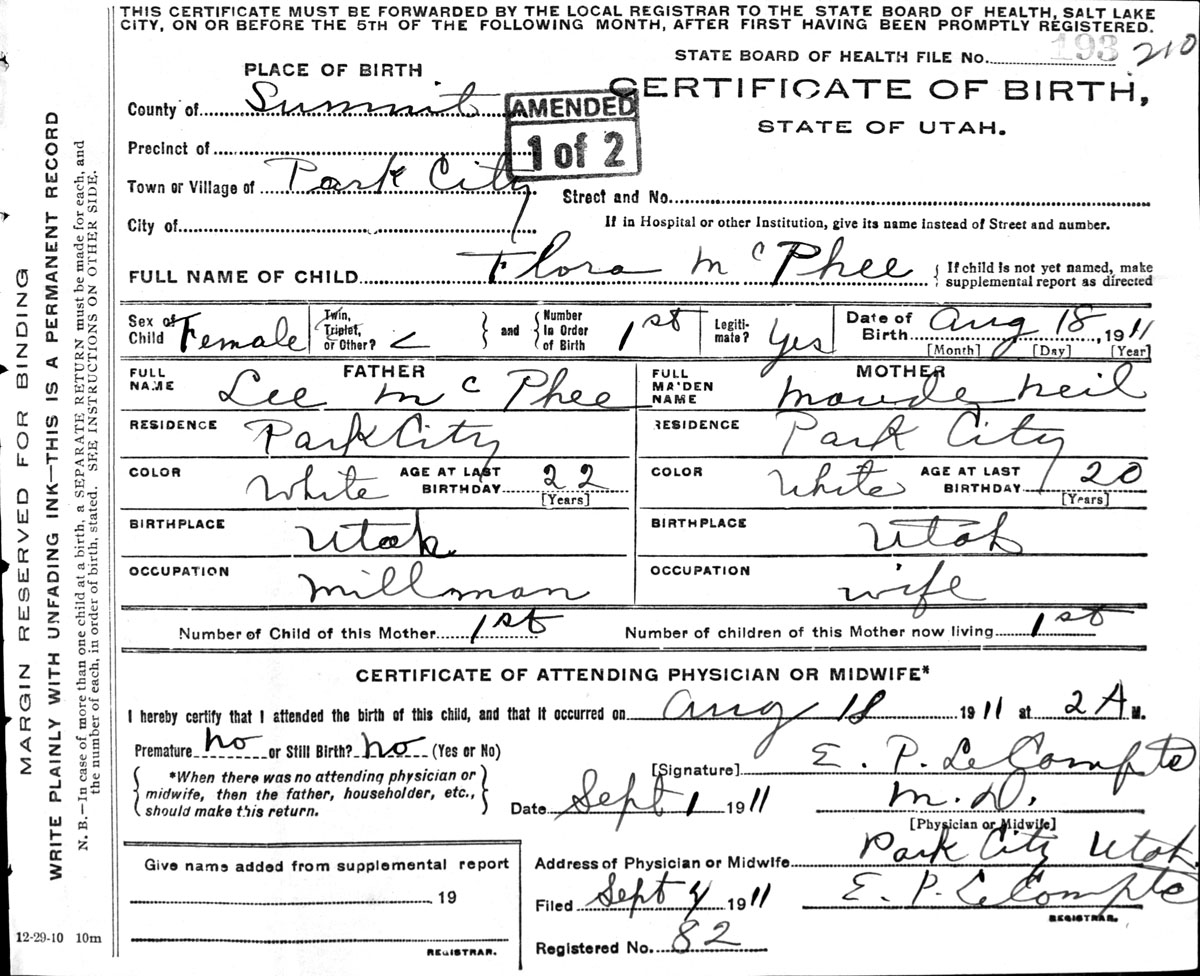 THIS CERTIFICATE MUST BE FORWARDED BY THE LOCAL REGISTRAR TO THE STATE BOARD OF HEALTH, SALT LAKE
CITY, ON OR BEFORE THE 5TH OF THE FOLLOWING MONTH, AFTER FIRST HAVING BEEN PROMPTLY REGISTERED.
STATE BOARD OF HEALTH FILE No. 193 210
PLACE OF BIRTH
CERTIFICATE OF BIRTH,
STATE OF UTAH.
County of Summit
AMENDED
1 of 2
Precinct of
Town or Village of Park City
Street and No.
City of
If in Hospital or other Institution, give its name instead of Street and number.
FULL NAME OF CHILD Flora McPhee { If child is not yet named, make supplemental report as directed
Sex of Child Female Twin, Triplet, or Other? } and { Number In Order of Birth 1st Legiti-mate? Yes Date of Birth Aug 18, 1911
[Month] [Day] [Year]
FATHER
FULL NAME Lee McPhee
MOTHER
FULL MAIDEN NAME Maude Neil
RESIDENCE Park City
RESIDENCE Park City
COLOR White AGE AT LAST BIRTHDAY 22 [Years]
COLOR White AGE AT LAST BIRTHDAY 20 [Years]
BIRTHPLACE Utah
BIRTHPLACE Utah
OCCUPATION millman
OCCUPATION wife
Number of Child of this Mother 1st Number of children of this Mother now living 1st
CERTIFICATE OF ATTENDING PHYSICIAN OR MIDWIFE*
I hereby certify that I attended the birth of this child, and that it occurred on Aug 18 1911 at 2 A M.
Premature no or Still Birth? no (Yes or No)
{ *When there was no attending physician or midwife, then the father, householder, etc., should make this return. }
[Signature] E. P. LeCompte
Date Sept 1 1911 M.D.
[Physician or Midwife]
Address of Physician or Midwife Park City Utah
Filed Sept 4 1911 E. P. LeCompte
REGISTRAR.
Registered No. 82
Give name added from supplemental report
19
REGISTRAR.
12-29-10 10m
MARGIN RESERVED FOR BINDING
WRITE PLAINLY WITH UNFADING INK—THIS IS A PERMANENT RECORD
N. B.—In case of more than one child at a birth, a SEPARATE RETURN must be made for each, and
the number of each, in order of birth, stated. SEE INSTRUCTIONS ON OTHER SIDE.